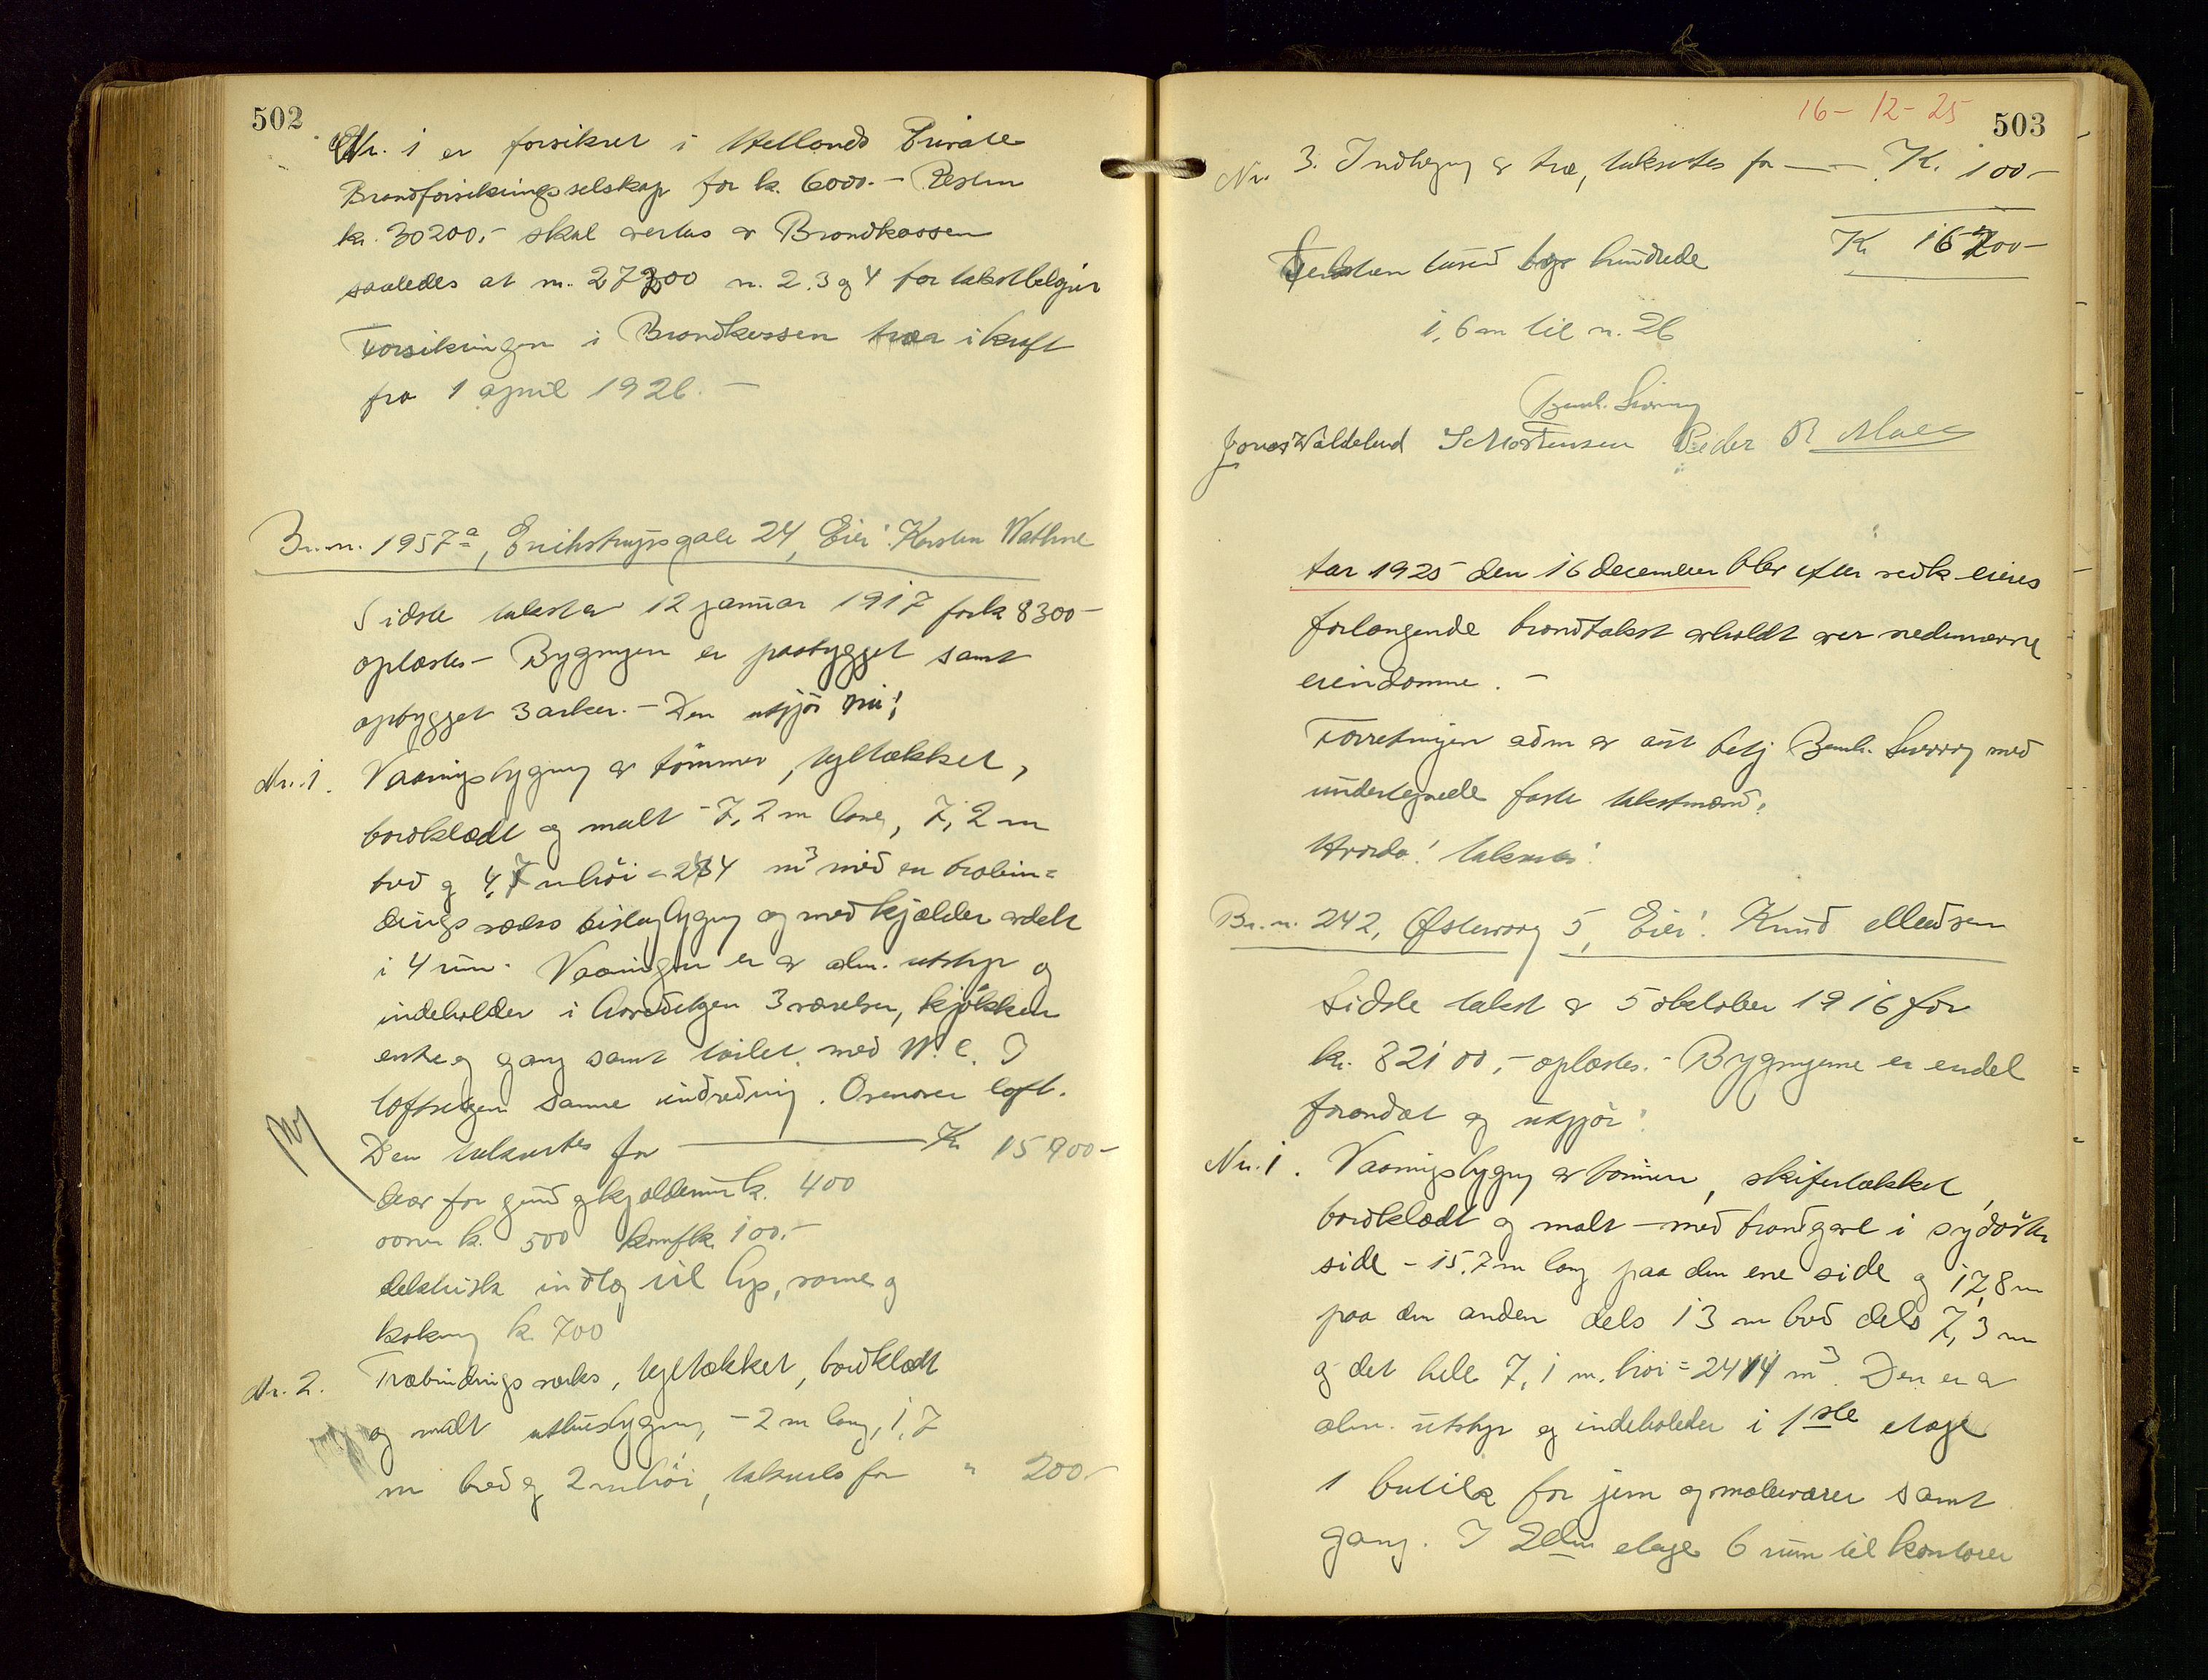 502
Nr. 1 er forsikret i Hetlands Private
Brandforsikringsselskap for k. 6000.- Resten
kr. 30200,- skal overtas av Brandkassen
saaledes at nr. 1 27200 n. 2. 3 og 4 for takstbeløpet
Forsikringen i Brandkassen træ i kraft
fra 1 april 1926. -
Br. nr. 1957a, Erichstrupsgate 24, Eier: Karsten Wathne
Sidste takst av 12 januar 1917 for k 8300-
oplæstes - Bygningen er paabygget samt
opbygget 3 arker. - Den utgjør nu:
Nr. 1. Vaaningsbygning av tømmer, tegltækket,
bordklædt og malt - 7,2 m lang, 7,2 m
bred og 4,7 m høi = 244 m3 med en trebin=
dingsverks bislagbygning og med kjelder avdelt
i 4 rum. Vaaningen er av alm. utstyr og
indeholder i hovedetagen 3 værelser, kjøkken
entre og gang samt toilet med W.C. I
loftsetagen samme indredning. Ovenover loft.
Den taksertes for Kr 15900-
derav for grund og kjeldermur k. 400
ovner k. 500 komf k. 100.-
elektrisk indlæg til lys, varme og
kokning k. 700
Nr. 2. Træbindingsverks, tegltækket, bordklædt
og malt uthusbygning, - 2 m lang, 1,7
m bred og 2 m høi, taksertes for " 200-
16-12-25
503
Nr. 3. Indhegning av træ, taksertes for K. 100-
Seksten tusind to hundrede Kr 16200-
1,6 m til n. 26
Bernh. Sverry
Jonas Waldeland S Mortensen Peder R Moe
Aar 1925 den 16 december blev efter vedk. eieres
forlangende brandtakst avholdt over nedennævnte
eiendomme. -
Forretningen adm av aut betj Bernh. Sverry med
undertegnede faste takstmænd.
Hvorda! takseres:
Br. n. 242, Østervaag 5, Eier: Knud Madsen
Sidste takst av 5 oktober 1916 for
kr. 82100,- oplæstes. - Bygningerne er endel
forandret og utgjør:
Nr. 1. Vaaningsbygning av tømmer, skifertækket,
bordklædt og malt - med brandgavl i sydøstre
side - 15,7 m lang paa den ene side og 17,8 m
paa den anden dels 13 m bred dels 7,3 m
og det hele 7,1 m. høi = 2414 m3. Den er av
alm. utstyr og indeholder i 1ste etage
1 butik for jern og malervarer samt
gang. I 2den etage 6 rum til kontorer